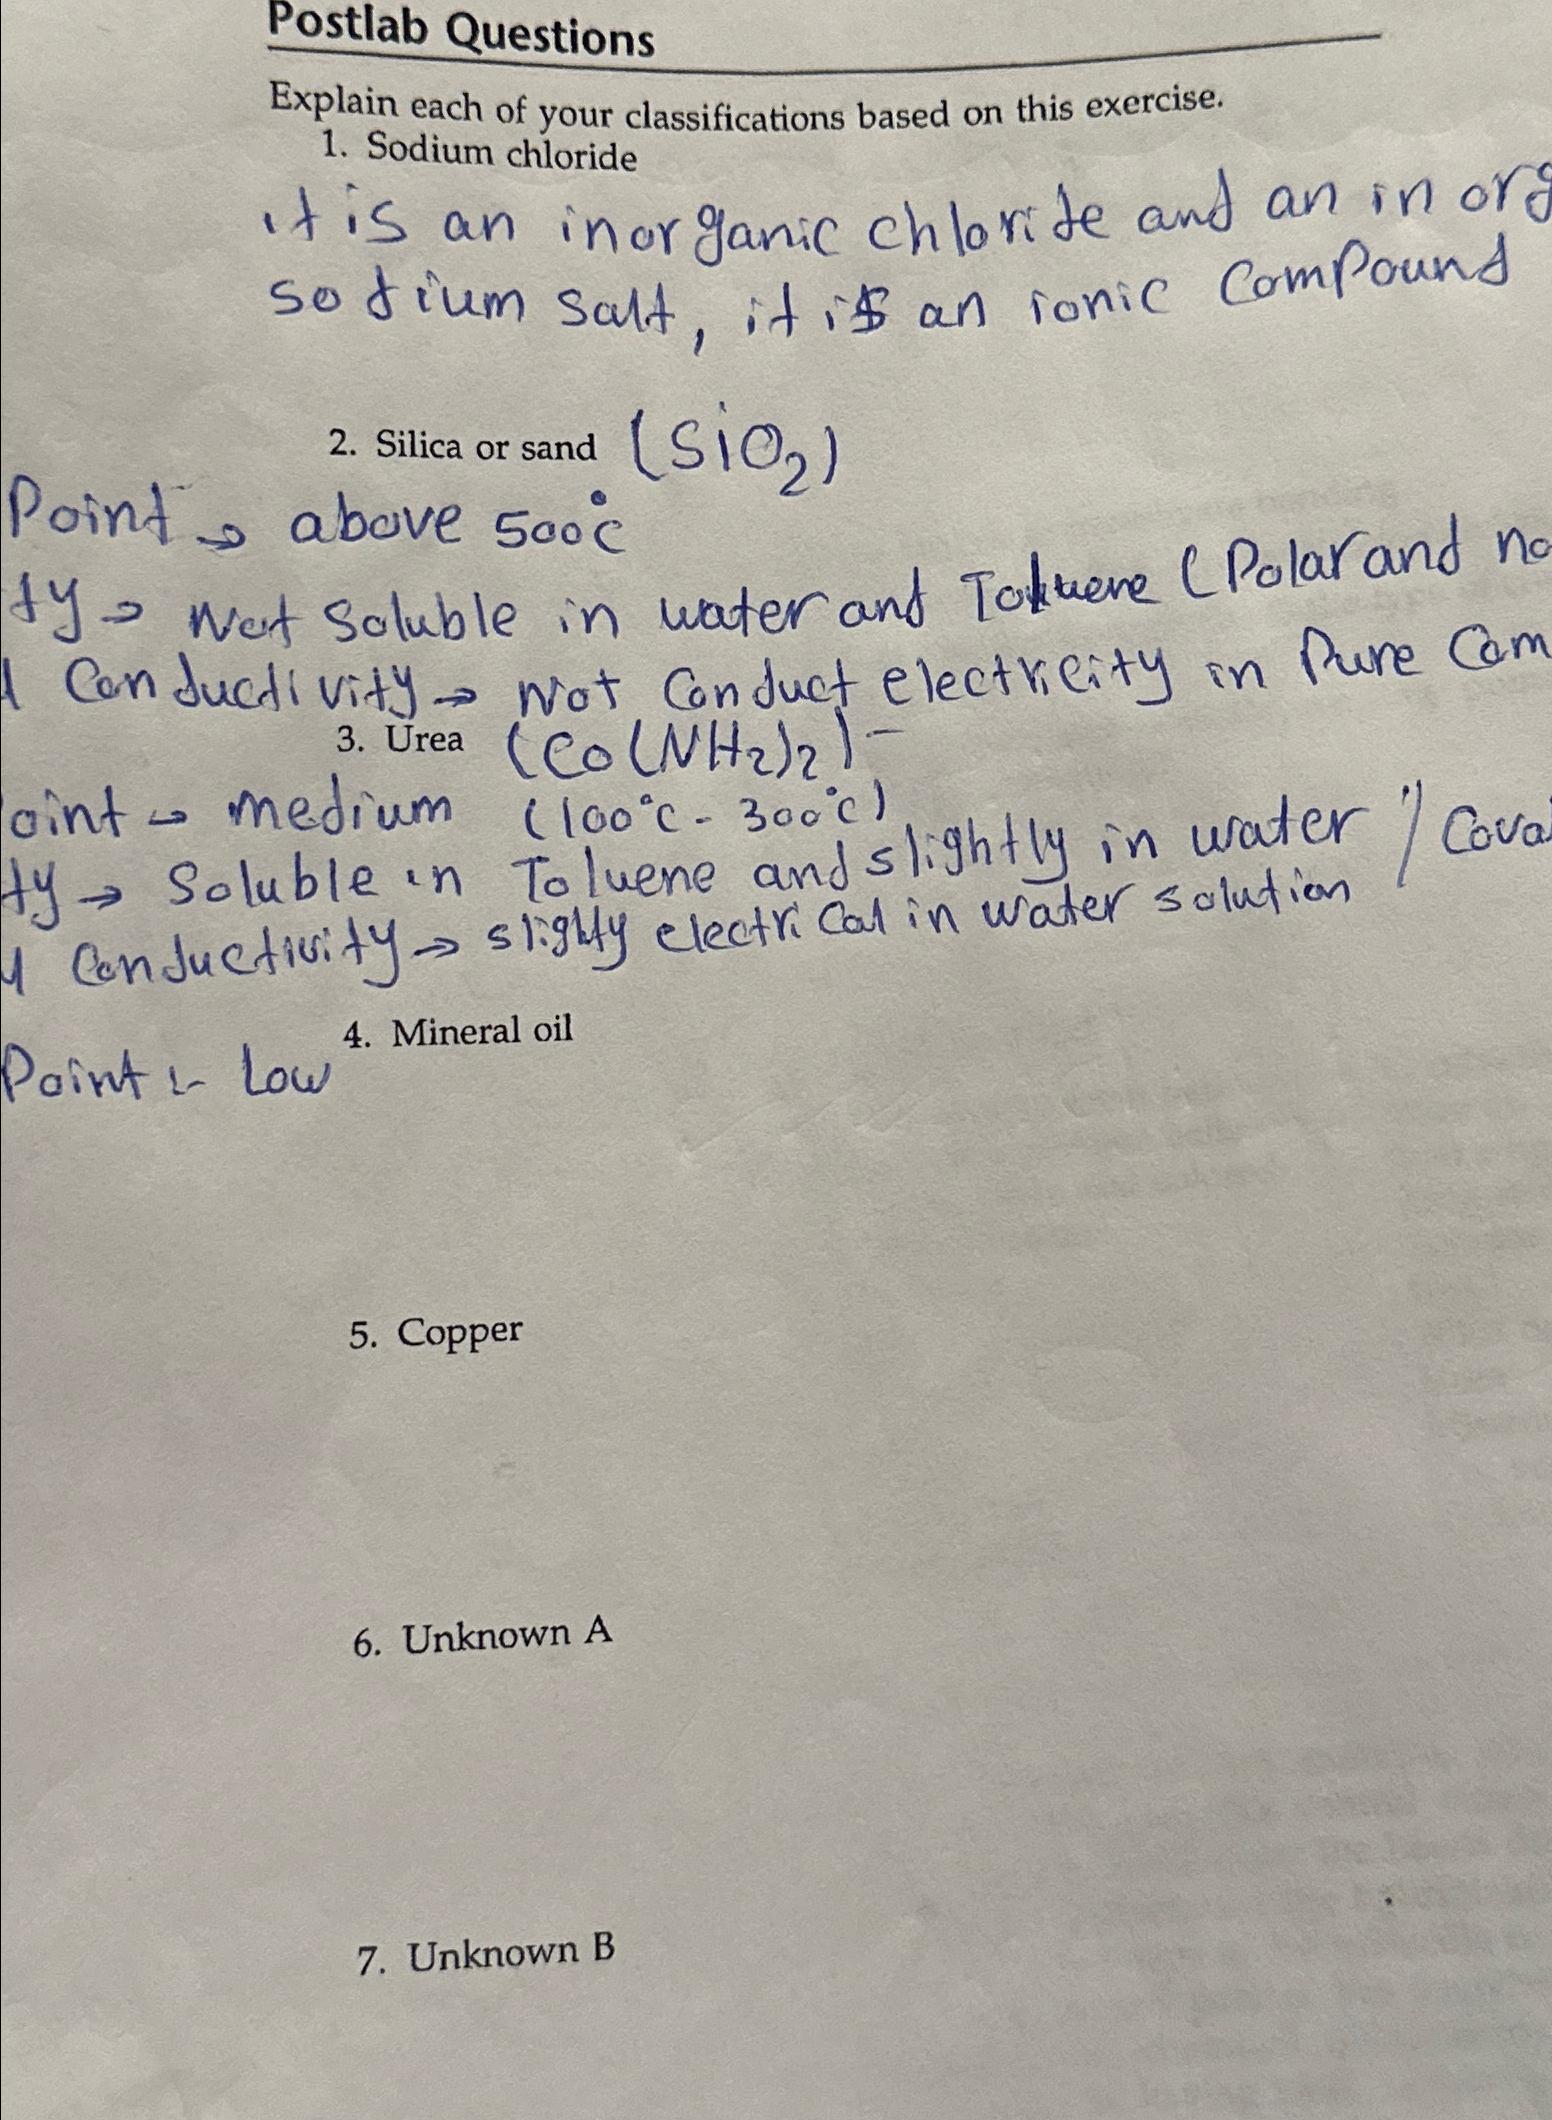 Postlab Questions
Explain each of your classifications based on this exercise.
1. Sodium chloride
it is an inorganic chloride and an in org
sodium salt, it is an ionic compound
2. Silica or sand (SiO2)
Point → above 500°C
ty → Not soluble in water and Toluene (Polar and no
l Conductivity → Not Conduct electricity in Pure Com
3. Urea (Co(NH2)2)
oint → medium (100°C - 300°C)
ty → Soluble in Toluene and slightly in water / Coval
l Conductivity → slighty electrical in water solution
4. Mineral oil
Point :- Low
5. Copper
6. Unknown A
7. Unknown B